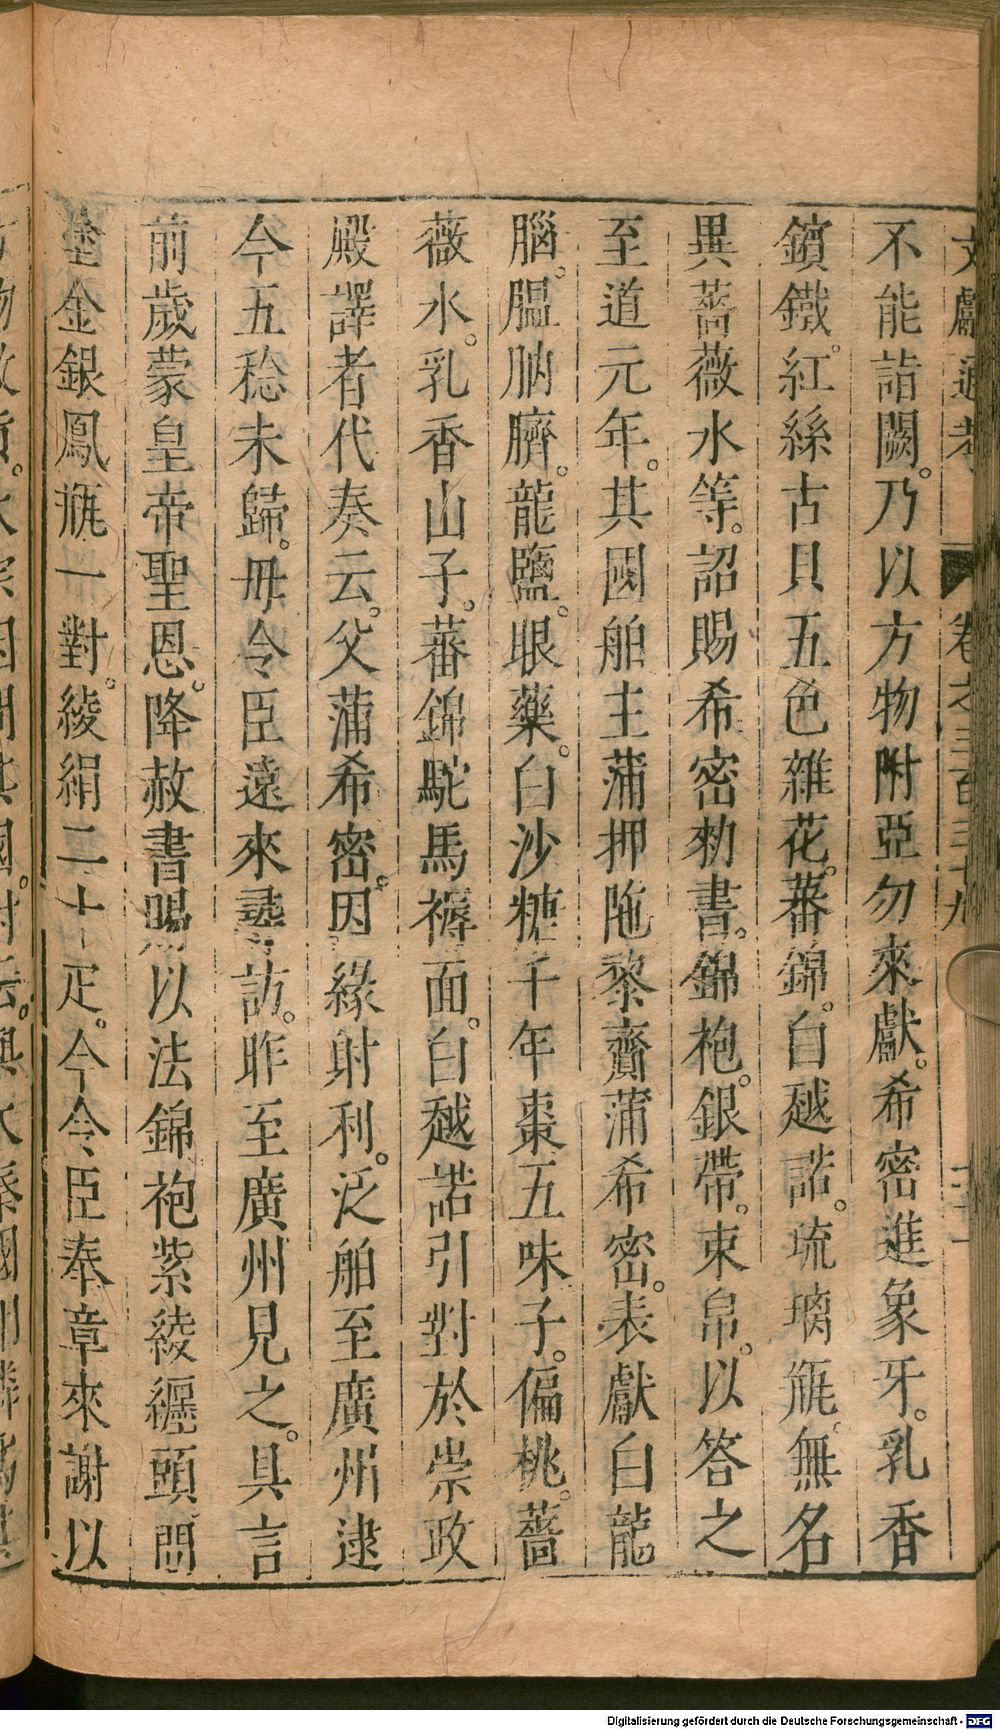 文獻通考 卷之三百三十九
不能詣闕。乃以方物附亞勿來獻。希密進象牙。乳香
鑌鐵。紅絲古貝五色雜花。蕃錦。白越諾。琉璃瓶。無名
異薔薇水等。詔賜希密勑書。錦袍。銀帶。束帛。以答之
至道元年。其國舶主蒲押陁黎齎蒲希密。表獻白龍
腦。膃肭臍。龍鹽。眼藥。白沙糖千年棗五味子。偏桃。薔
薇水。乳香山子。蕃錦駝馬褥面。白越諾引對於崇政
殿譯者代奏云。父蒲希密。因緣射利。泛舶至廣州逮
今五稔未歸。毋令臣遠來尋訪。昨至廣州見之。具言
前歲蒙皇帝聖恩。降赦書賜以法錦袍紫綾纏頭。間
塗金銀鳳瓶一對。綾絹二十疋。今令臣奉章來謝以
Digitalisierung gefördert durch die Deutsche Forschungsgemeinschaft - DFG